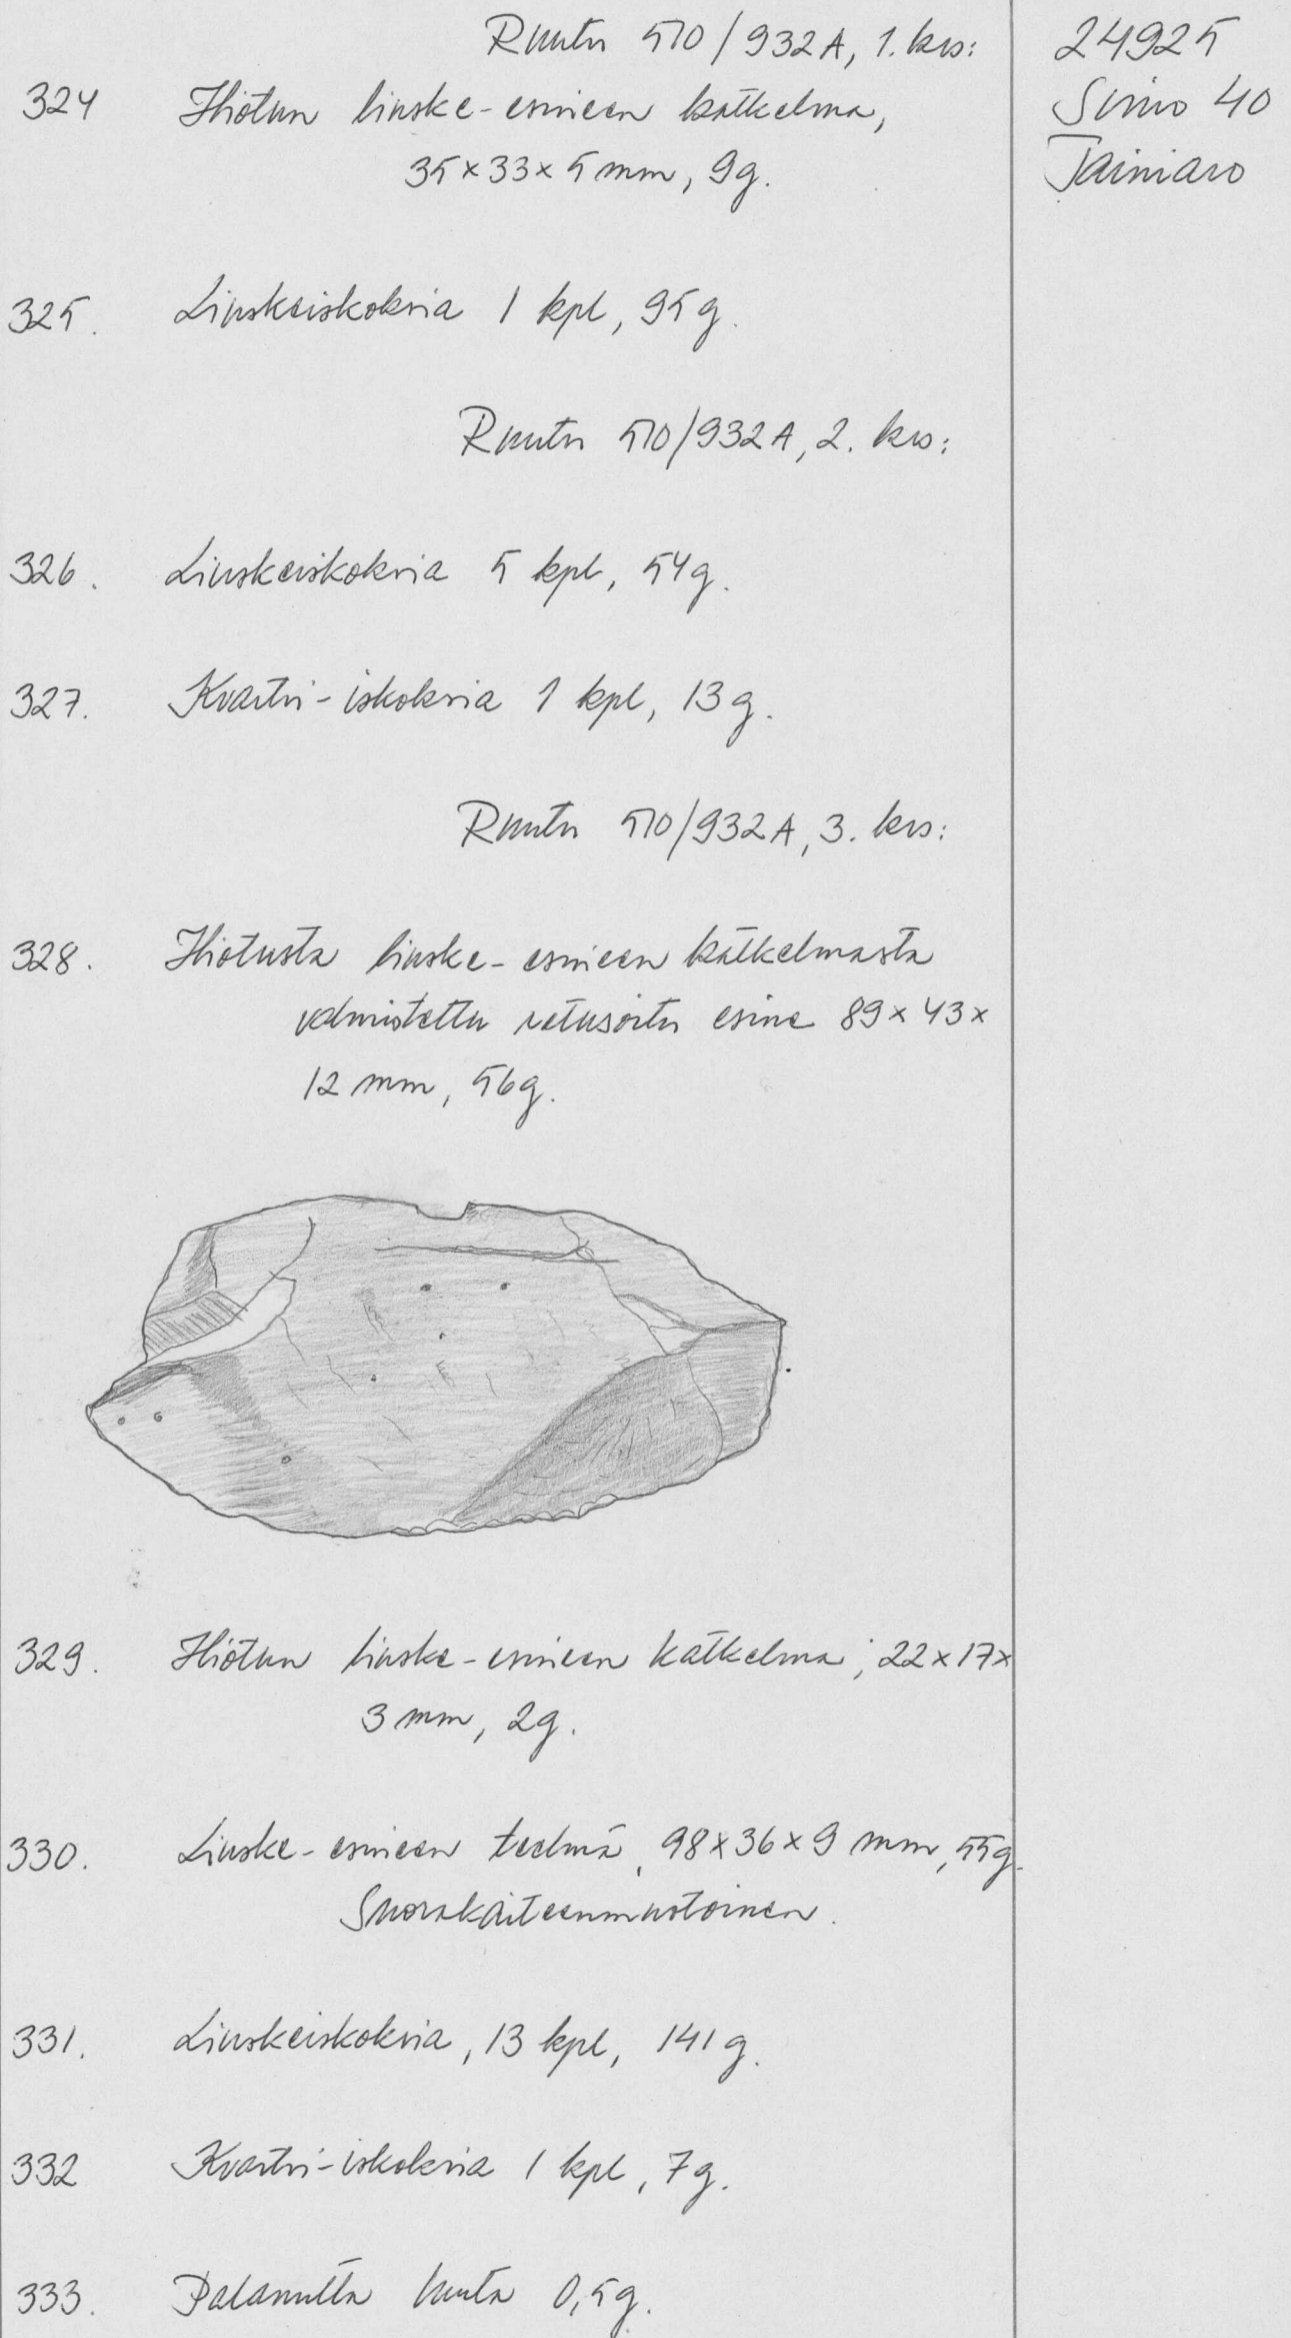 Ruutu 510/932A, 1. krs:
24925
Simo 40
Tainiaro
324 Hiotun liuske-esineen katkelma,
35×33×5 mm, 9g.
325. Liuskeiskoksia 1 kpl, 95 g.
Ruutu 510/932A, 2. krs:
326. Liuskeiskoksia 5 kpl, 54g.
327. Kvartsi-iskoksia 1 kpl, 13 g.
Ruutu 510/932A, 3. krs:
328. Hiotusta liuske-esineen katkelmasta
valmistettu retusoitu esine 89×43×
12 mm, 56g.
329. Hiotun liuske-esineen katkelma, 22×17×
3 mm, 2g.
330. Liuske-esineen teelmä, 98×36×9 mm, 55g.
Suorakaiteenmuotoinen.
331. Liuskeiskoksia, 13 kpl, 141 g.
332 Kvartsi-iskoksia 1 kpl, 7g.
333. Palanutta luuta 0,5g.